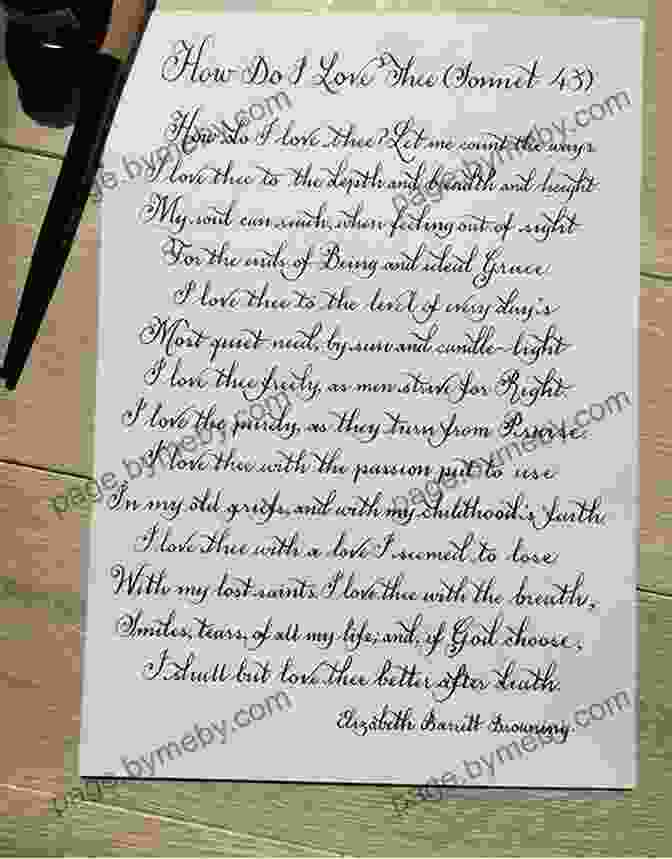 How Do I Love Thee (Sonnet 43)
How do I love thee? Let me count the ways
I love thee to the depth and breadth and height
My soul can reach, when feeling out of sight
For the ends of Being and ideal Grace
I love thee to the level of every day's
Most quiet need, by sun and candle-light
I love thee freely, as men strive for Right.
I love the purely, as they turn from Praise.
I love thee with the passion put to use
In my old griefs, and with my childhood's faith
I love thee with a love I seemed to lose
With my lost saints. I love thee with the breath,
Smiles, tears, of all my life; and, if God choose,
I shall but love thee better after death.
Elizabeth Barrett Browning
page.bymeby.com
page.bymeby.com
page.bymeby.com
page.bymeby.com
page.bymeby.com
page.bymeby.com